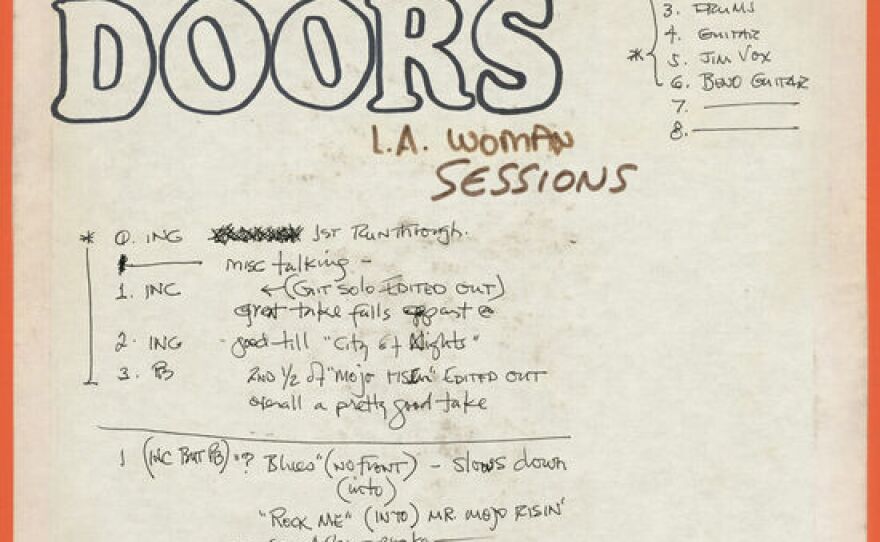 DOORS
3. DRUMS
4. GUITAR
* 5. JIM VOX
6. BEND GUITAR
7.
8.
L.A. WOMAN
SESSIONS
* 0. INC 1ST RUNTHROUGH.
misc talking -
1. INC ← (GUIT SOLO EDITED OUT)
great take falls apart @
2. INC good till "City of Nights"
3. PB 2ND 1/2 of "MOJO RISEN" EDITED OUT
overall a pretty good take
1 (INC BUT PB) "? Blues" (NO FRONT) - slows down
(into)
"ROCK ME" (INTO) MR. MOJO RISIN'